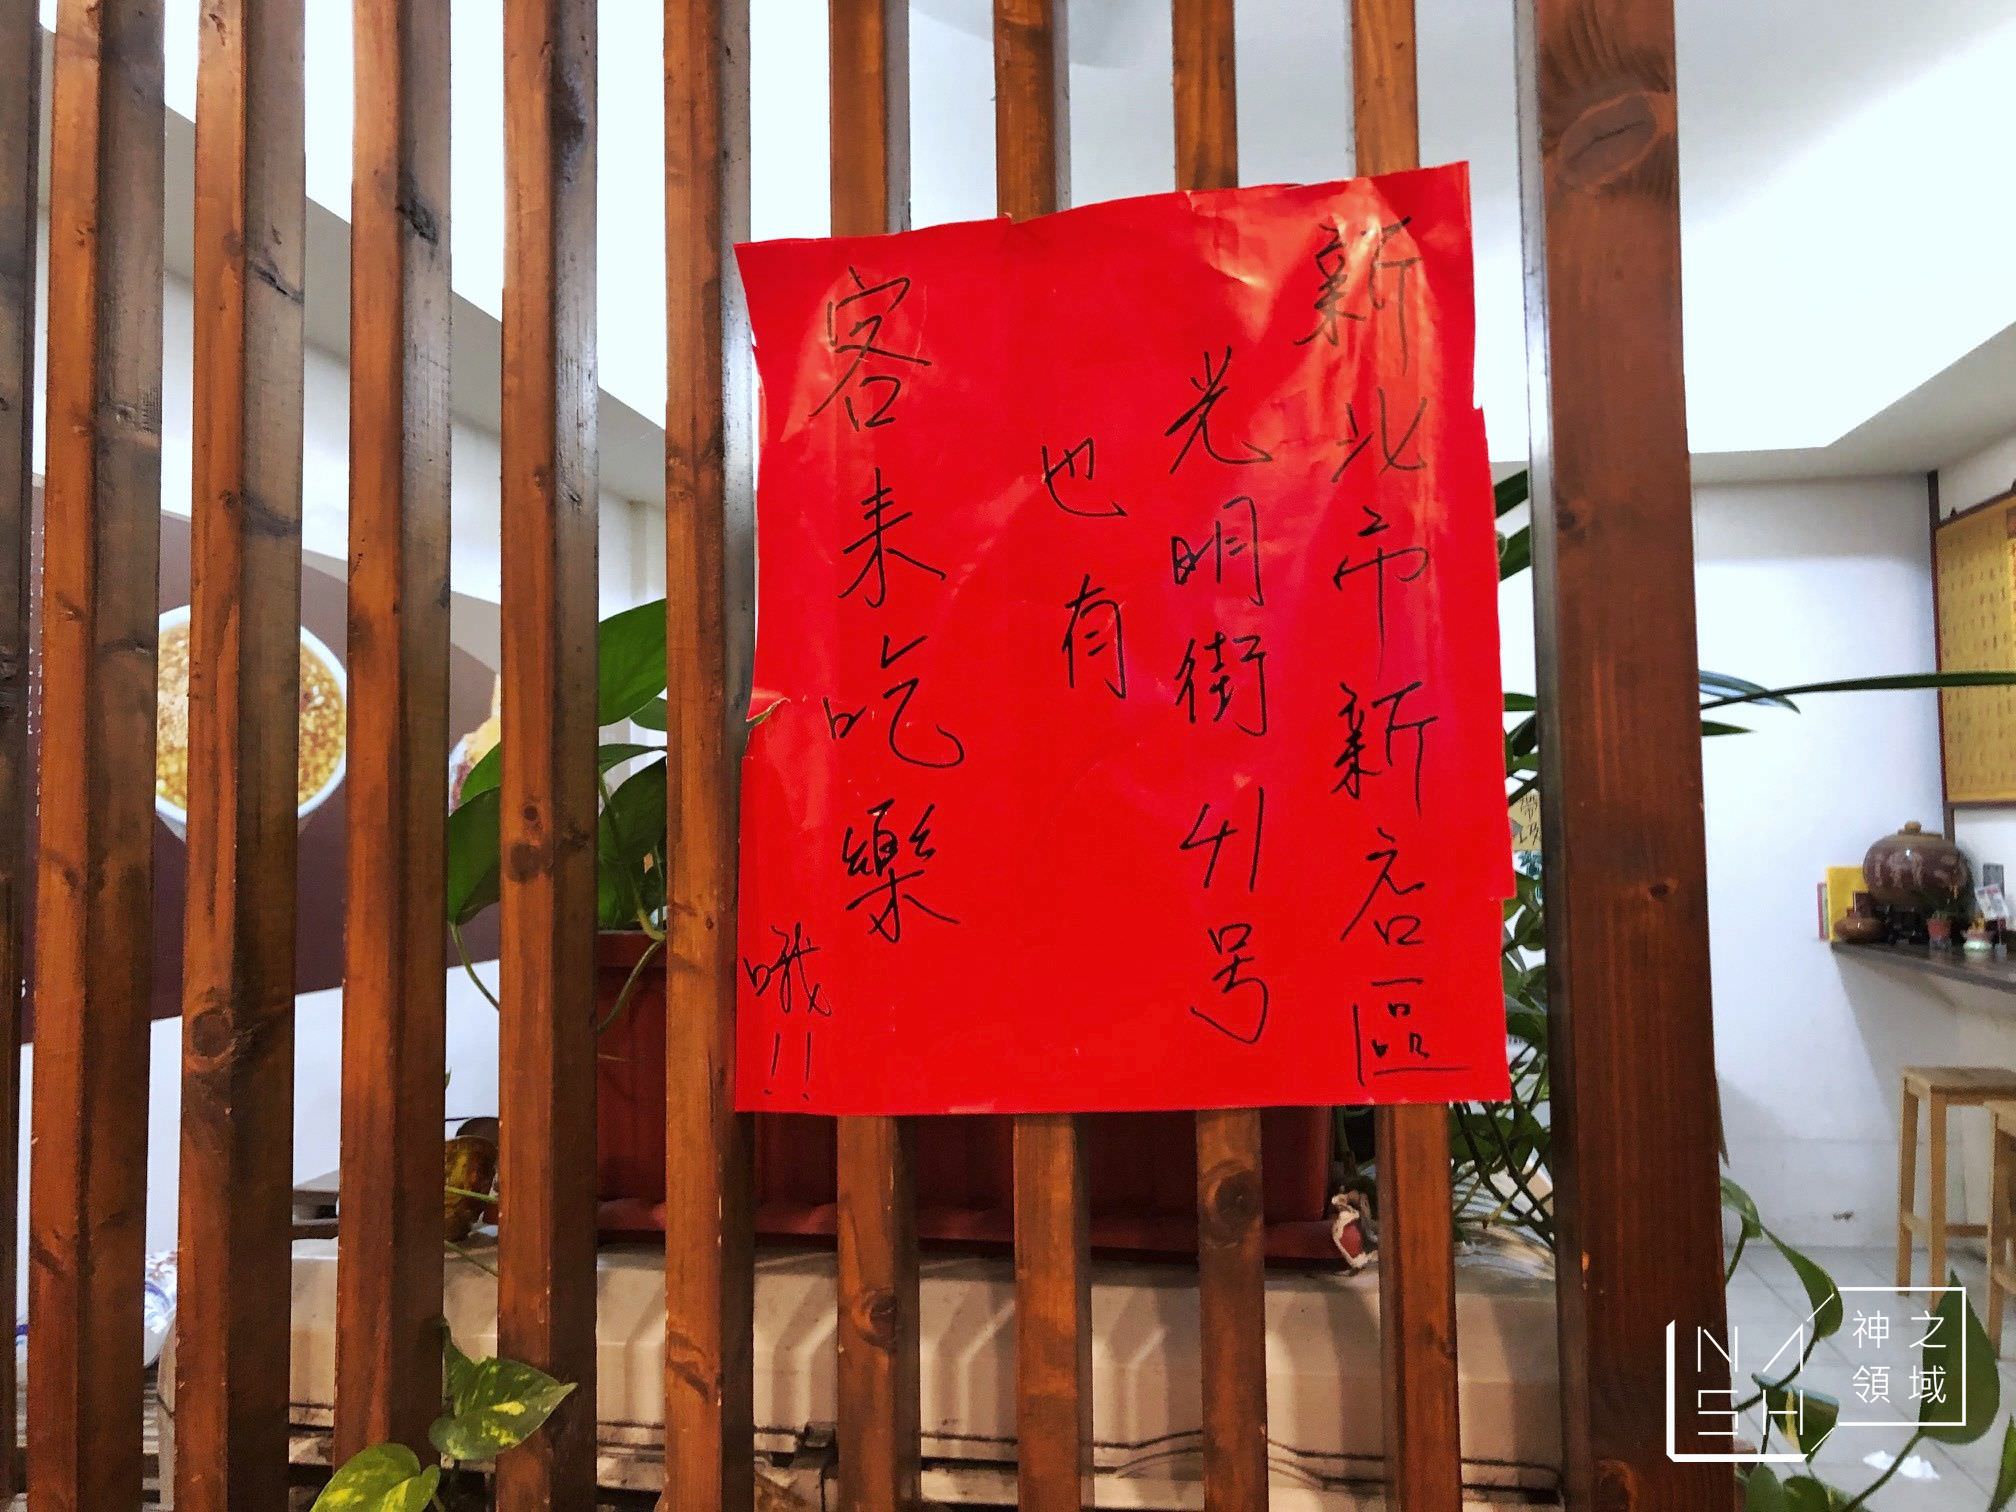 新北市新店區
光明街41号
也有
客来吃樂
哦!!
NASH
神之領域